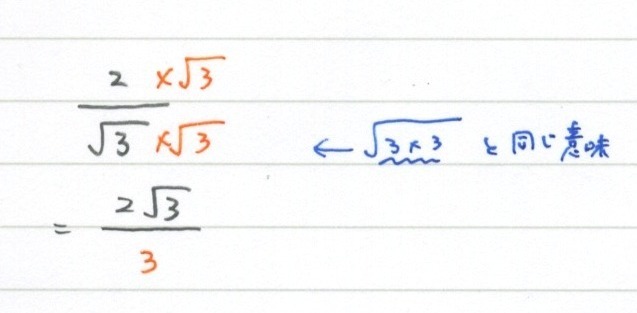 2 ×√3
√3 ×√3 ← √3×3 と同じ意味
= 2√3
3